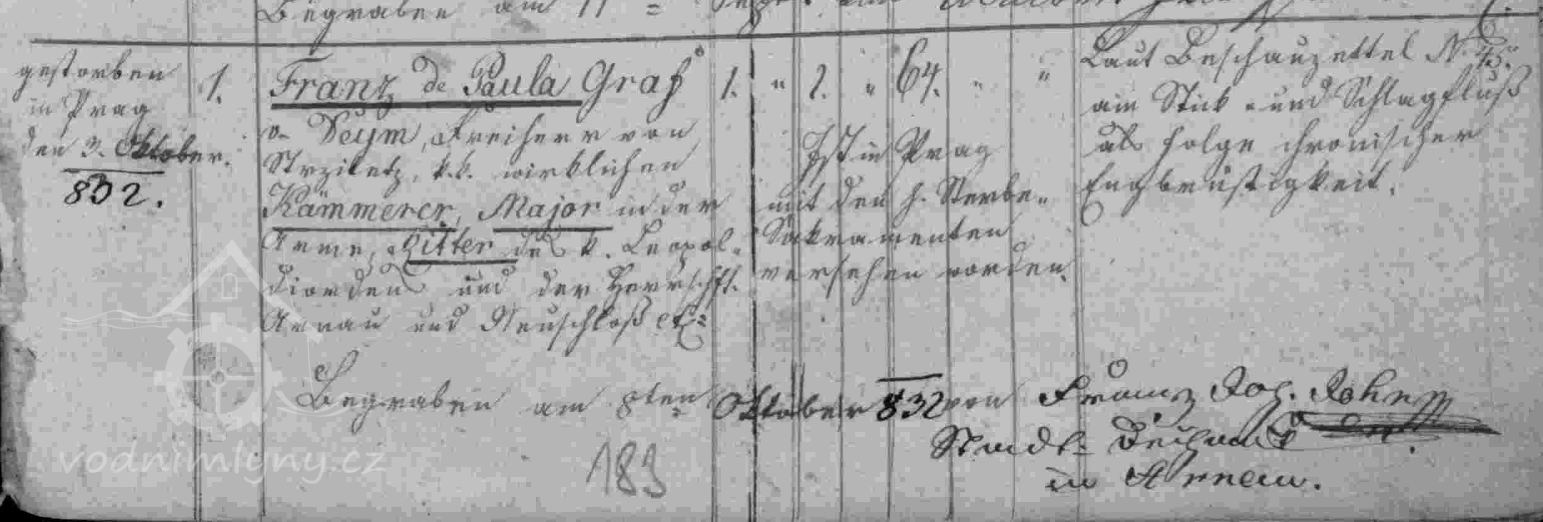 Begraben am 11 = Sept.
gestorben
in Prag
den 3. Oktober.
832.
1.
Franz de Paula Graf
v. Deym, Freiherr von
Strzitetz, k.k. wirklichen
Kämmerer, Major in der
Arme, Ritter des k. Leopol-
diorden und der Herrschft.
Arnau und Neuschloß etc:
1. " 1. " 64. " "
Ist in Prag
mit den h. Sterbe-
Sakramenten
versehen worden.
Laut Beschauzettel N. 45.
am Stick- und Schlagfluß
als Folge chronischer
Engbrüstigkeit.
Begraben am 8ten Oktober 832 von Franz Jos. Rohn
Stadt- Dechant
in Arnau.
183
vodnimlyny.cz